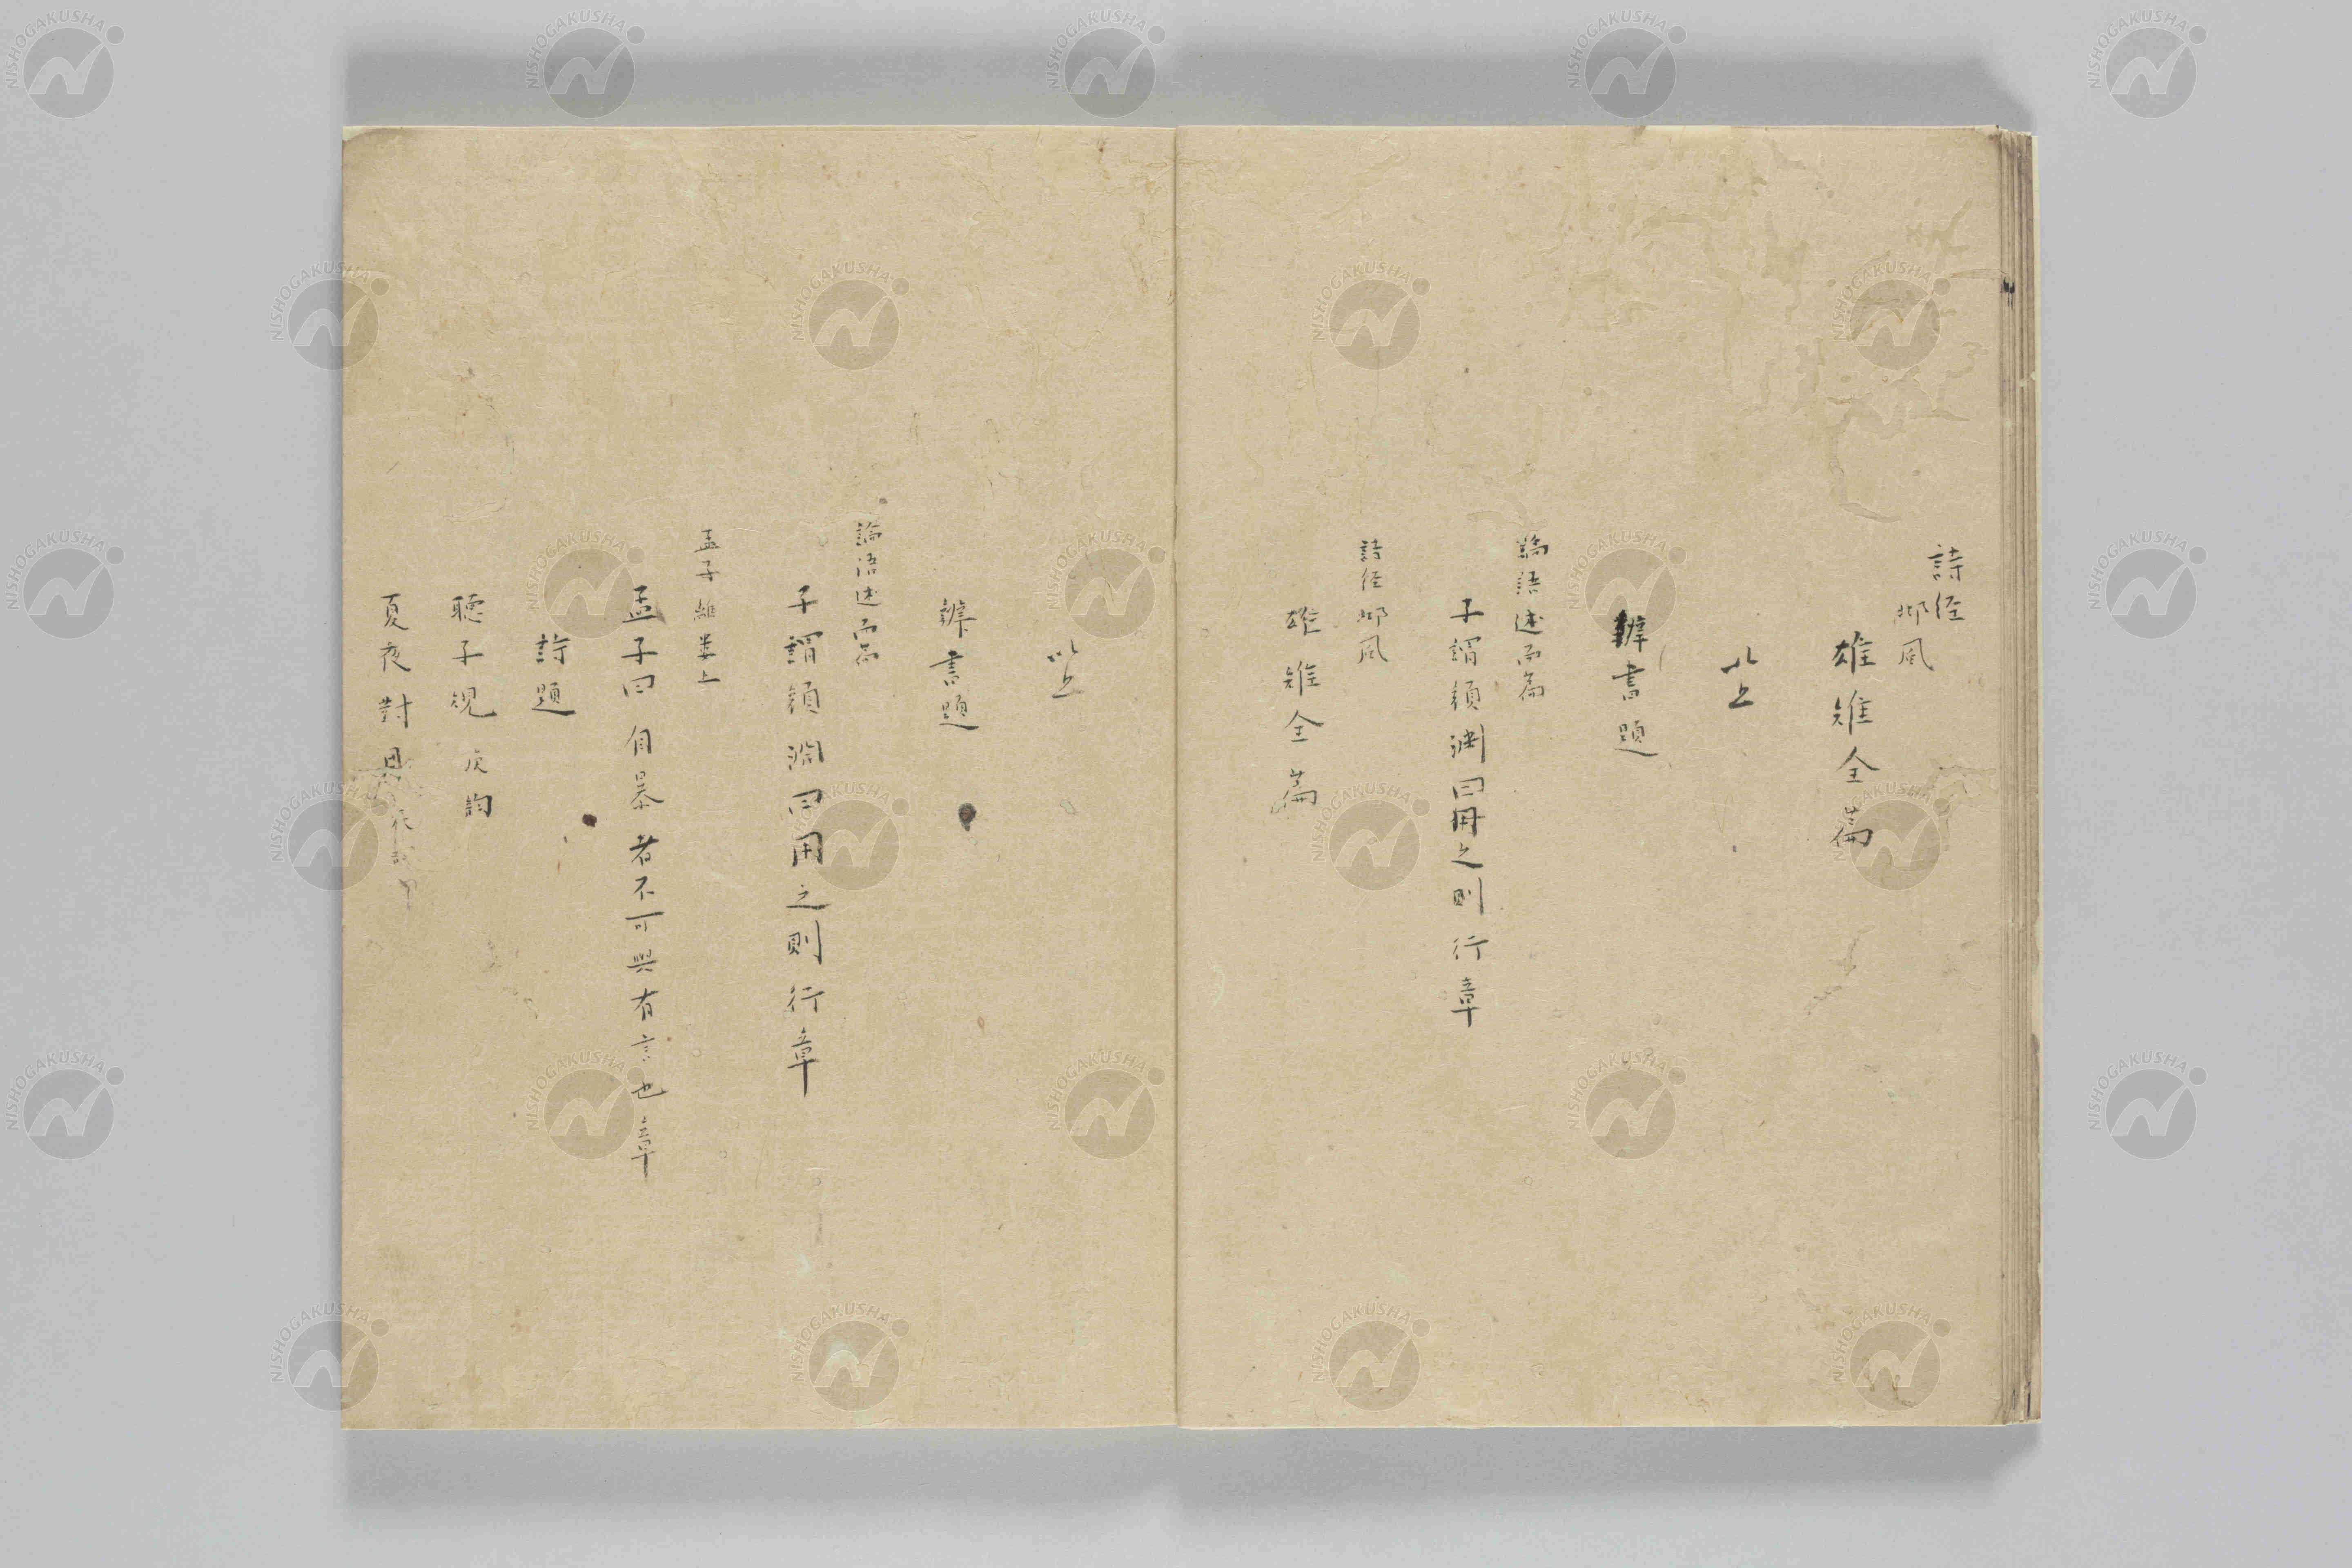 詩経
邶風
雄雉全篇
以上
辨書題
論語述而篇
子謂顔渊曰用之則行章
詩経邶風
雄雉全篇
以上
辨書題
論語述而篇
子謂顔淵曰用之則行章
孟子離婁上
孟子曰自暴者不可與有言也章
詩題
聴子規 庚韵
夏夜對月
NISHOGAKUSHA